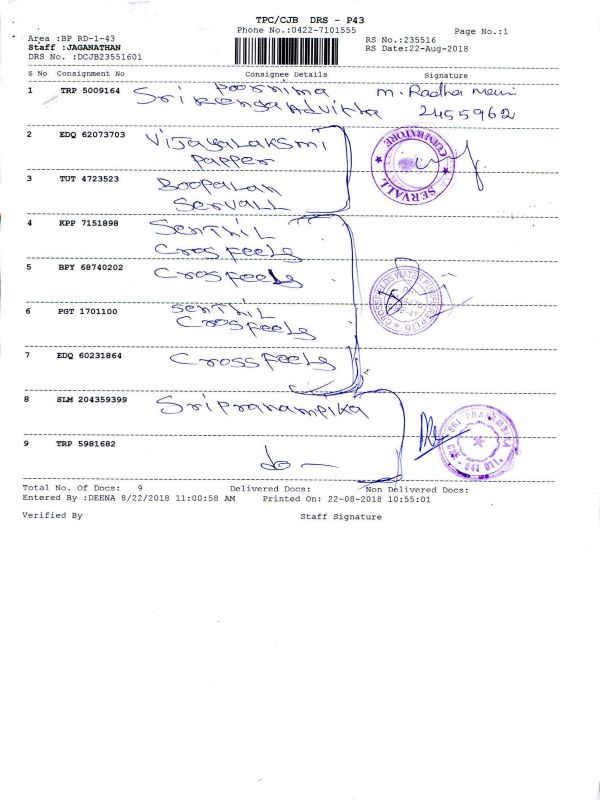 TPC/CJB DRS - P43
Phone No.:0422-7101555
Page No.:1
Area :BP RD-1-43
RS No.:235516
Staff :JAGANATHAN
RS Date:22-Aug-2018
DRS No. :DCJB23551601
S No Consignment No Consignee Details Signature
1 TRP 5009164 Poornima M. Radha Mani
Sri 2455962
2 EDQ 62073703 Vijayalaksmi
papper
COIMBATORE
SERVALL
3 TUT 4723523 Boopalan
Servall
4 KPP 7151898 Senthil
Crosfeels
5 BPY 68740202 Crosfeels
6 PGT 1701100 Senthil
Crosfeels
7 EDQ 60231864 Crossfeels
8 SLM 204359399 Sripranampika
SRI
9 TRP 5981682 do -
Total No. Of Docs: 9 Delivered Docs: Non Delivered Docs:
Entered By :DEENA 8/22/2018 11:00:58 AM Printed On: 22-08-2018 10:55:01
Verified By Staff Signature